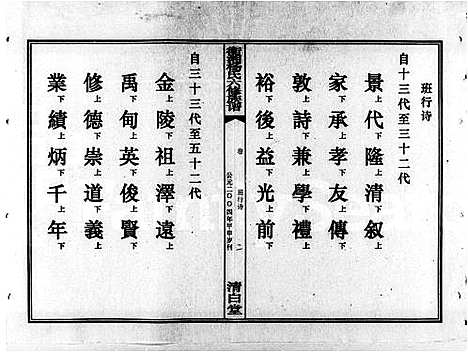 班行诗
自十三代至三十二代
景上代下隆上清下叙上
家下承上孝下友上傳下
敦上詩下兼上學下禮上
裕下後上益下光上前下
氏六修族谱
卷 班行诗 二
公元二〇〇四年甲申岁刊
清白堂
自三十三代至五十二代
金上陵下祖上澤下遠上
禹下甸上英下俊上賢下
修上德下崇上道下義上
業下績上炳下千上年下